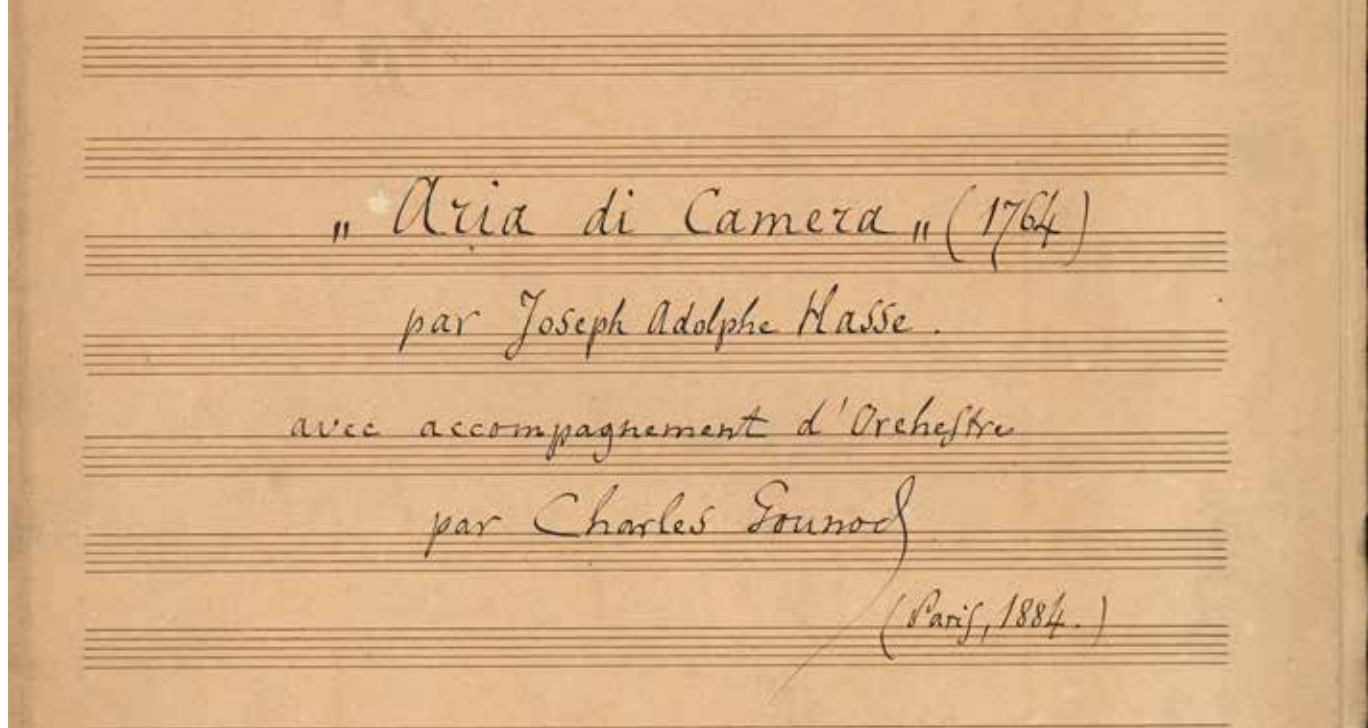 „ Aria di Camera „ (1764)
par Joseph Adolphe Hasse.
avec accompagnement d'Orchestre
par Charles Gounod
(Paris, 1884.)